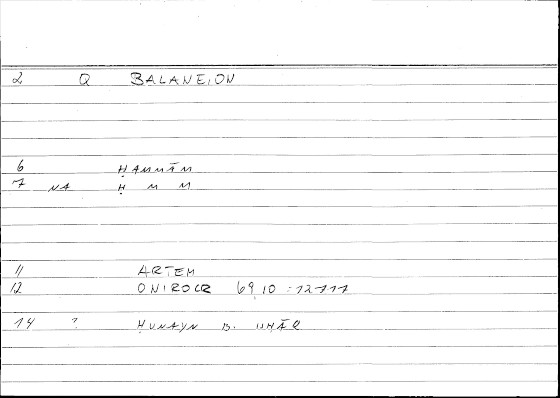 2 Q BALANEION
6 ḤAMMĀM
7 NA Ḥ M M
11 ARTEM
12 ONIROCR 69,10 : 12717
14 ? ḤUNAYN B. ISḤĀQ